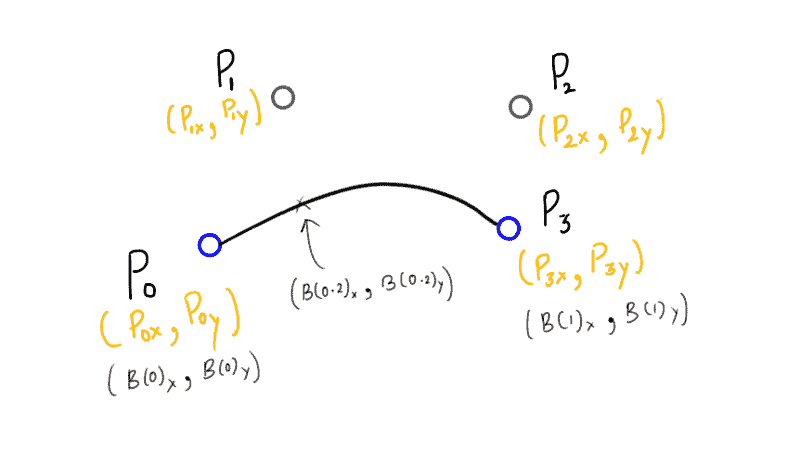 P₁
(P₁ₓ, P₁y)
P₂
(P₂ₓ, P₂y)
P₀
(P₀ₓ, P₀y)
(B(0)ₓ, B(0)y)
(B(0.2)ₓ, B(0.2)y)
P₃
(P₃ₓ, P₃y)
(B(1)ₓ, B(1)y)